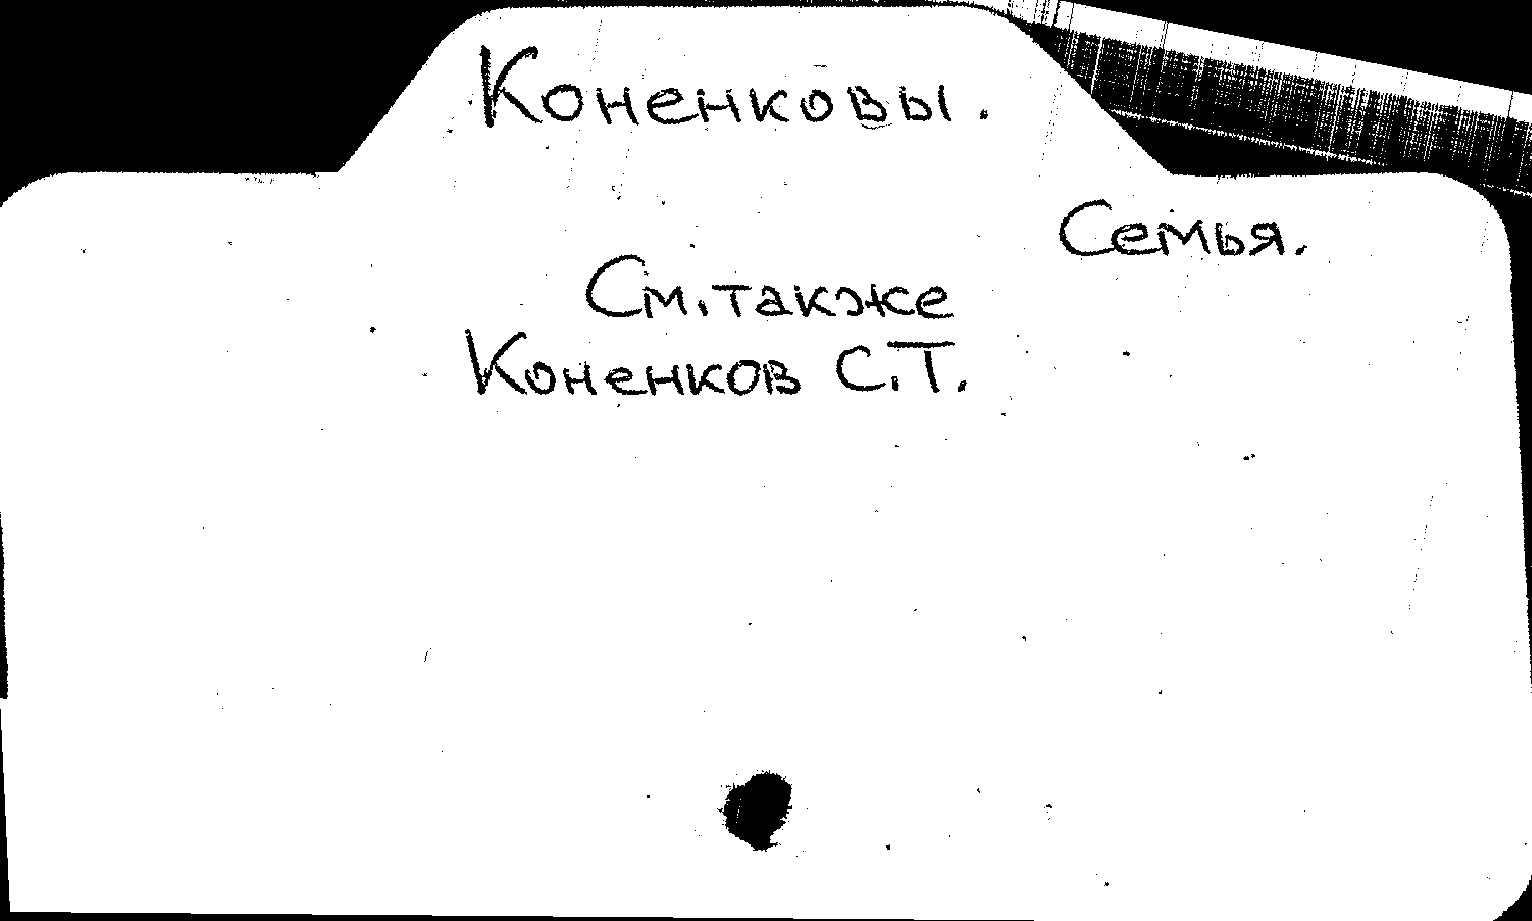 Коненковы.
Семья.
См. также
Коненков С.Т.